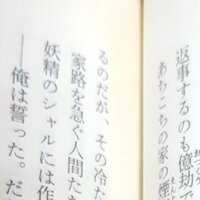 返事するのも億劫で
あちこちの家の煙
るのだが、その冷た
家路を急ぐ人間た
妖精のシャルには作
──俺は誓った。だ